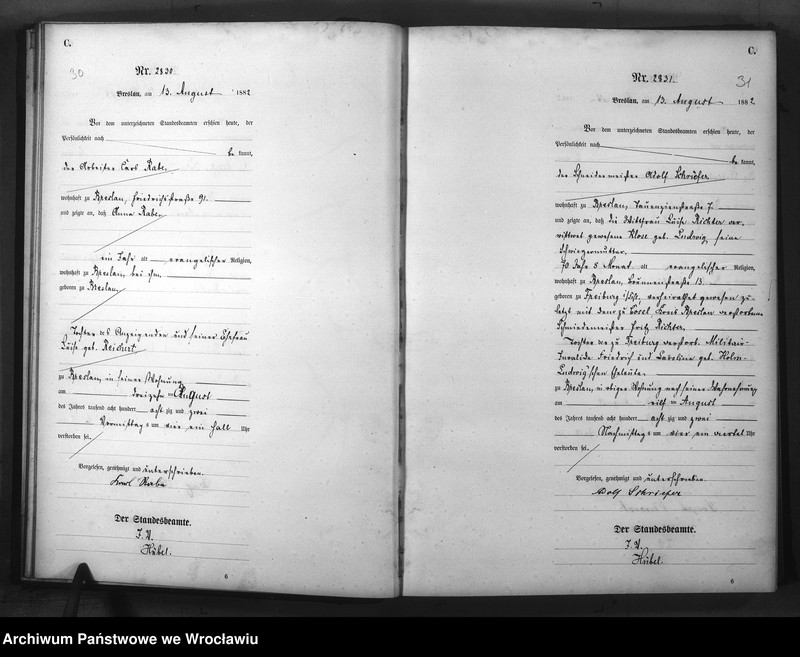 C.
30
Nr. 2830.
Breslau, am 13. August 1882
Vor dem unterzeichneten Standesbeamten erschien heute, der
Persönlichkeit nach
be kannt,
der Arbeiter Carl Rabe,
wohnhaft zu Breslau, Friedrichstraße 91.
und zeigte an, daß Anna Rabe,
ein Jahr alt evangelischer Religion,
wohnhaft zu Breslau, bei ihm,
geboren zu Breslau,
Tochter des Anzeigenden und seiner Ehefrau
Luise geb. Reichert
zu Breslau, in seiner Wohnung
am dreizehn ten August
des Jahres tausend acht hundert acht zig und zwei
Vormittags um vier ein halb Uhr
verstorben sei.
Vorgelesen, genehmigt und unterschrieben.
Karl Rabe
Der Standesbeamte.
I. V.
Hübel.
6
C.
31
Nr. 2831.
Breslau, am 13. August 1882.
Vor dem unterzeichneten Standesbeamten erschien heute, der
Persönlichkeit nach
be kannt,
der Schneidermeister Adolf Schriefer,
wohnhaft zu Breslau, Tauenzienstraße 7.
und zeigte an, daß die Wittfrau Luise Richter ver-
wittwet gewesene Klose geb. Ludwig, seine
Schwiegermutter,
70 Jahr 8 Monat alt evangelischer Religion,
wohnhaft zu Breslau, Brunnenstraße 13.
geboren zu Freiburg i/Schl., verheirathet gewesen zu-
letzt mit dem zu Cosel, Kreis Breslau verstorbenen
Schmiedemeister Fritz Richter,
Tochter der zu Freiburg verstorb. Militair-
Invalide Friedrich und Caroline geb.
Ludwig'schen Eheleute,
zu Breslau, in obiger Wohnung nach seiner Wahrnehmung
am elf ten August
des Jahres tausend acht hundert acht zig und zwei
Nachmittags um vier ein viertel Uhr
verstorben sei.
Vorgelesen, genehmigt und unterschrieben.
Adolf Schriefer
Der Standesbeamte.
I. V.
Hübel.
6
Archiwum Państwowe we Wrocławiu